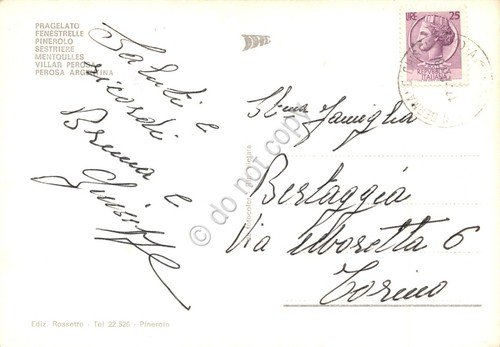 PRAGELATO
FENESTRELLE
PINEROLO
SESTRIERE
MENTOULLES
VILLAR PEROSA
PEROSA ARGENTINA
Saluti e
ricordi
Bruna e
Giuseppe
LIRE 25
REPVBBLICA
ITALIANA
Ill.ma Famiglia
Bertaggia
Via 6
Torino
do not copy
Ediz. Rossetto - Tel. 22.526 - Pinerolo